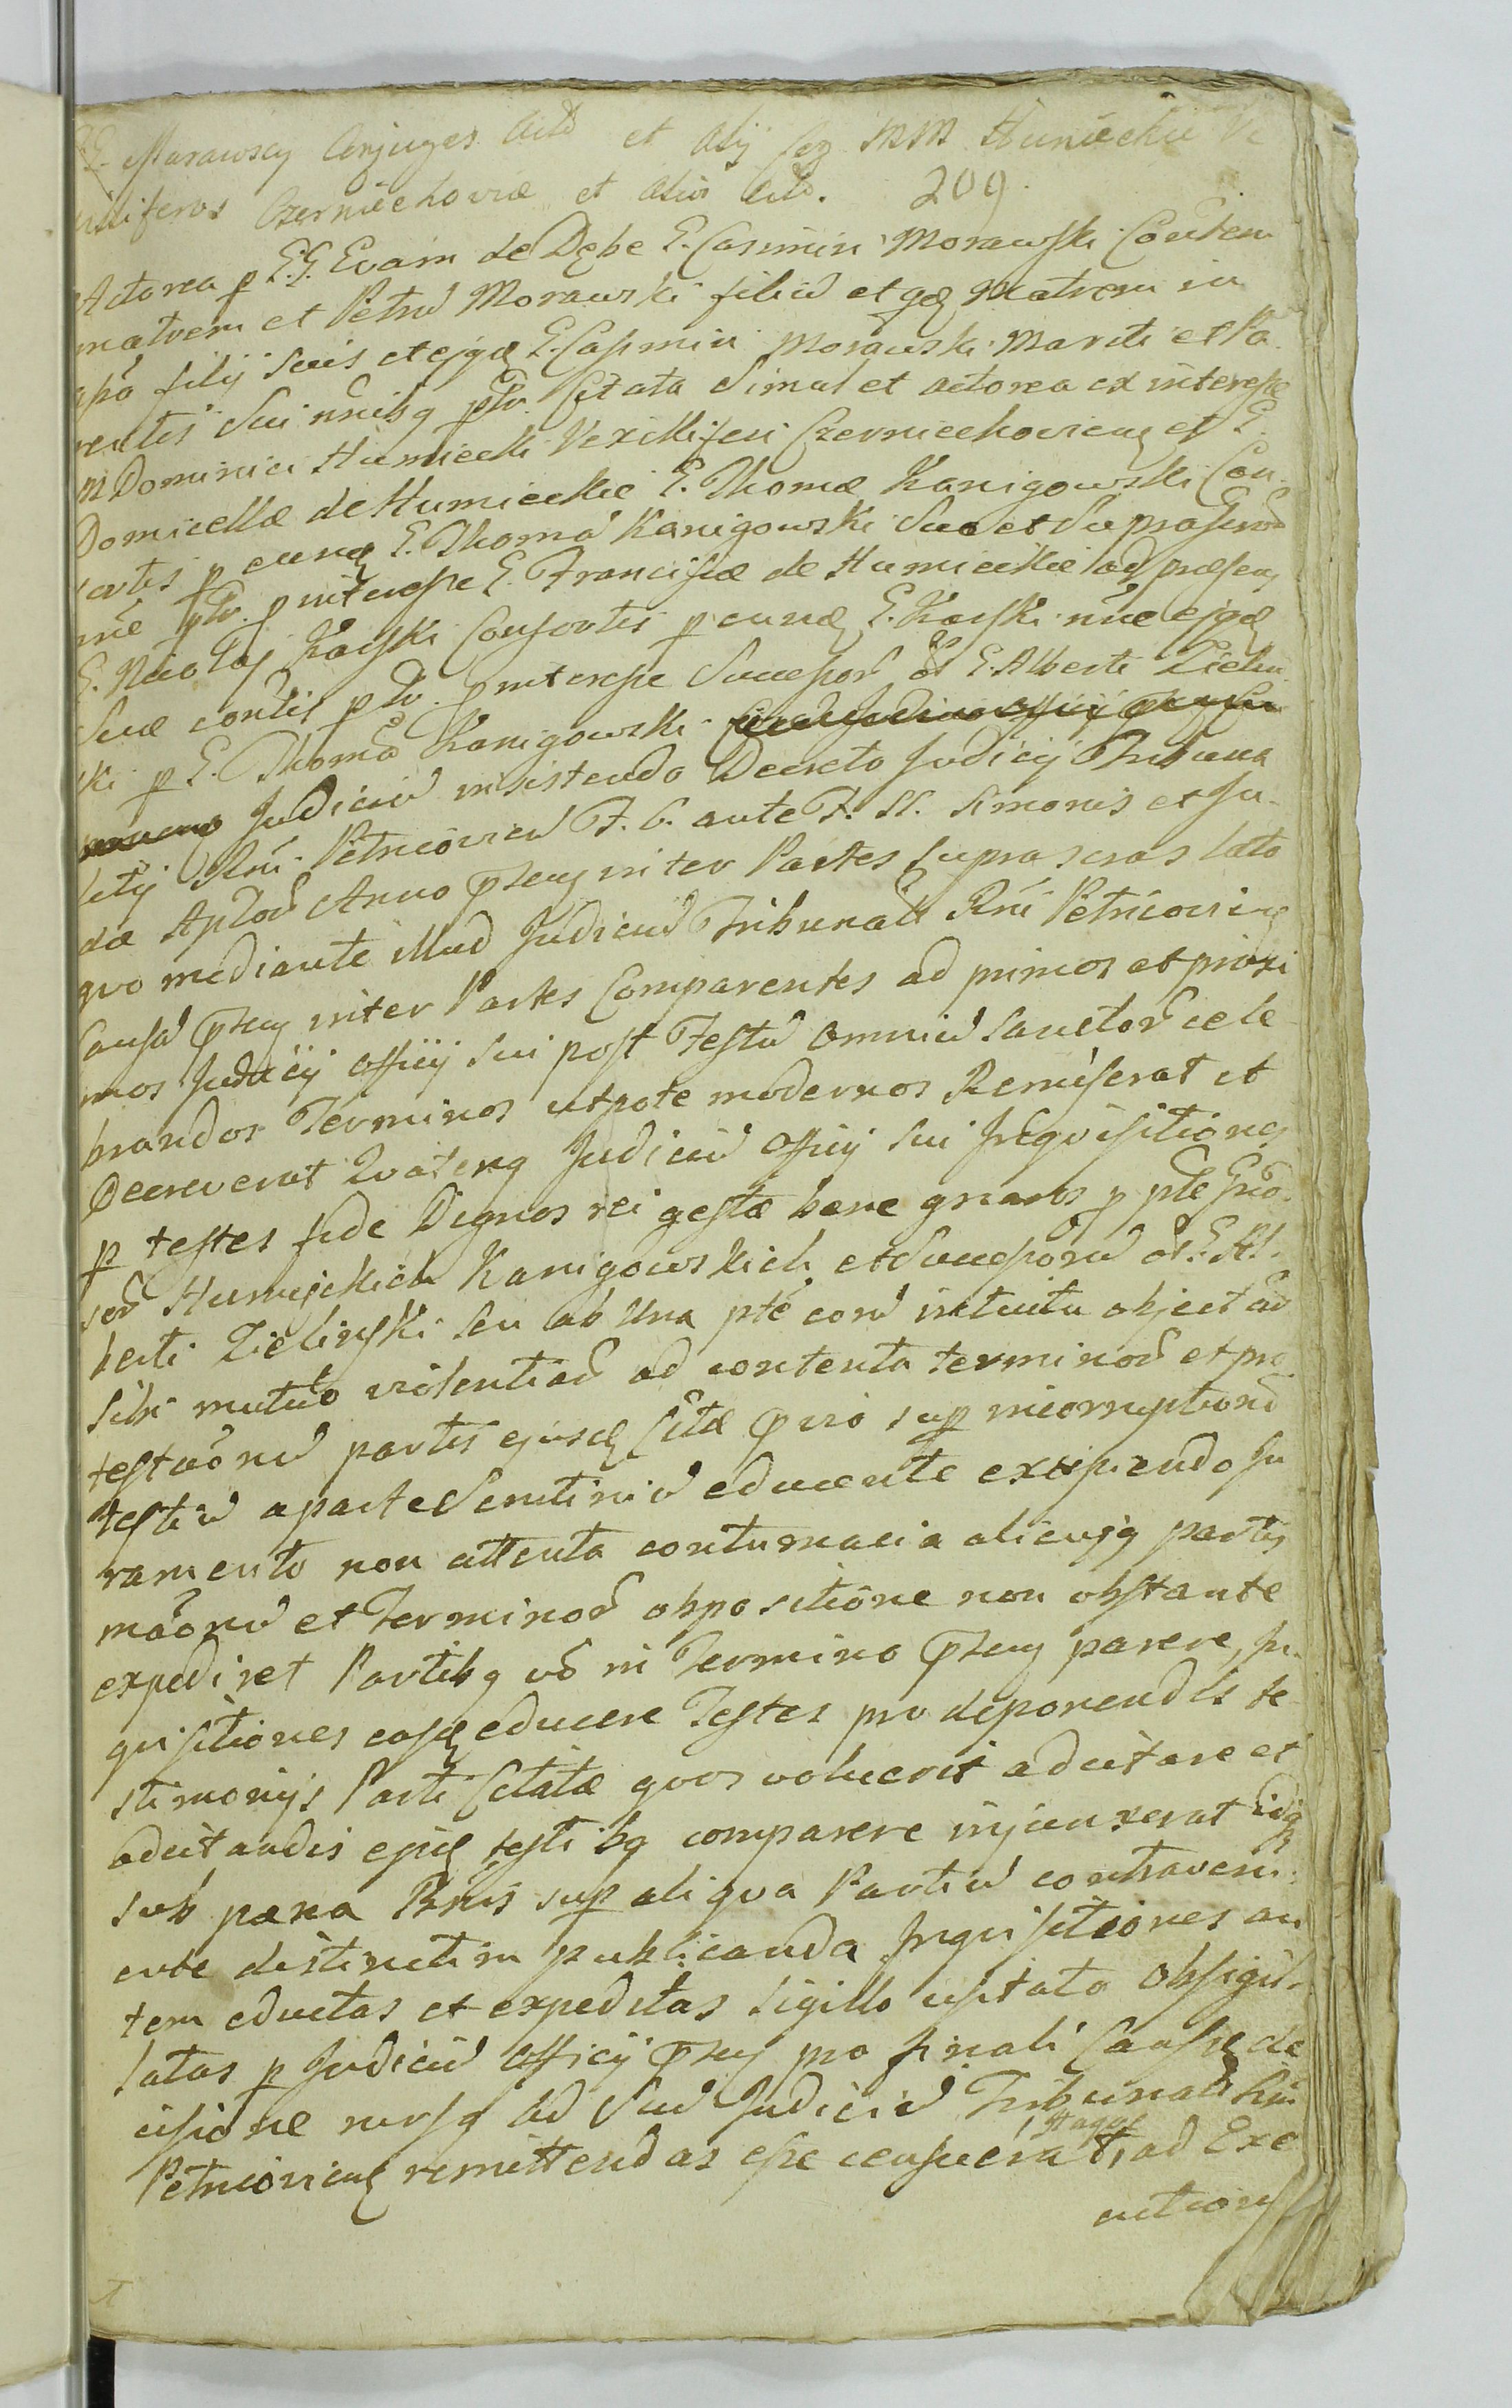 Morawscy Conjuges Actõ et Alij seq MM Humieckie Ve
xilliferos Czerniechoviæ et alios Actõ. 209.
Actorea p E.G. Evam de Dębe E. Casimiri Morawski Conthen
matrem et Petrũ Morawski filiũ et qdẽ Matrem in
apõ filij Suis et ejqz E. Casimiri Morawski Mariti et Pa
rentis Sui nõibq ptõ. Citata Simul et actorea ex interesse
M Dominici Humiecki Vexilliferi Czerniechovienẽ et E.
Domicellæ de Humieckie E. Thomæ Kanigowski Con
sortis p eundẽ E. Thomã Kanigowski Suo et Suprascrõ
nõe ptõ. p interesse E. Franciscæ de Humieckie ad præsens
E. Nicolaj Karski Consortis p eundẽ E. Karski nõe ejqẽ
Suæ contis ptõ. p interesse Successor õl E. Alberti Zielin
ski p E. Thomã Kanigowski
Judiciũ insistendo Decreto Judicij Tribuna
litij Rni Petricovien F. 6. ante F. SS. Simonis et Ju
dæ Aplor Anno pñey inter Partes suprascras lato
quo mediante illud Judiciũ Tribunalis Rni Petricovieñ
Causã pñey inter Partes Comparentes ad primos et proxi
mos Judicij Officij sui post Festũ Omniũ Sanctor cele
brandos Terminos utpote modernos Remiserat et
Decreverat Quatenq Judiciũ Officij Sui Inquisitiones
p testes fide Dignos rei gestæ bene gnaros p pte Gno
sor Humieckich Kanigowskich et Successorũ õl. E. Al
berti Zielinski seu ab Una pte eorũ intuitu objectar
sibi mutuo violentiar ad contenta terminor et pro
testaõnũ partis ejusdẽ Citæ pvio sup incorruptionẽ
testiũ a parte Scrutiniũ educente excipiendo Ju
ramento non attenta contumacia alicujq partis
mãonũ et Terminor obpositione non obstante
expediret Partibq võ in Termino pñey parere, In
quisitiones easdẽ educere Testes pro deponendis te
stimonijs Parti Citatæ quos voluerit adcitare et
adcitandis ejusdẽ testibq comparere injunxerat idq
sub pæna Bñis sup aliqua Partiũ contraveni
ente distinctim publicanda Inquisitiones au
tem eductas et expeditas Sigillo usitato Obsigil
latas p Judiciũ Officij pñey pro finali Causæ de
cisione rursq ad Suũ Judiciũ Tribunalis Rni
Petricovieñ remittendas esse censuerat, Itaque ad Exe
cutionẽ